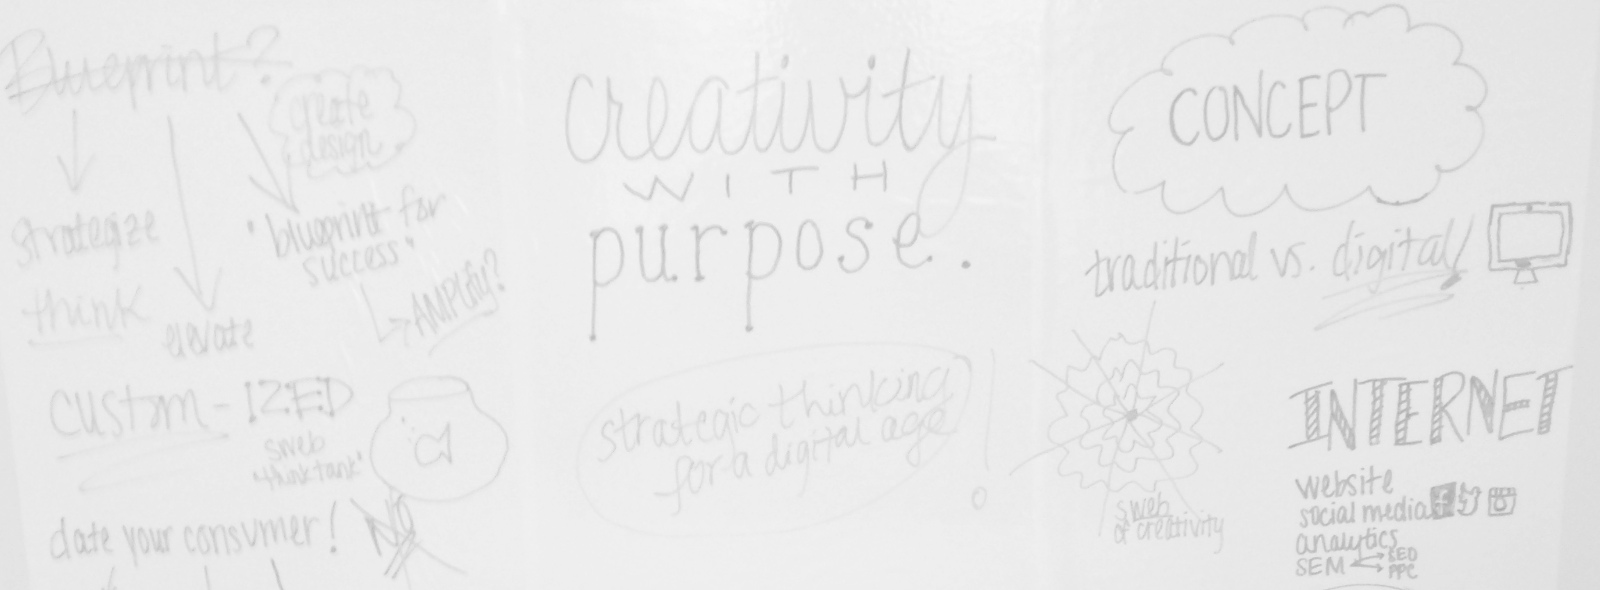 Blueprint?
create
design
strategize
think
elevate
"blueprint for
success"
AMPLIfy?
CUSTOM-IZED
sweb
"thinktank"
date your consumer!
NO
creativity
WITH
purpose.
strategic thinking
for a digital age
!
CONCEPT
traditional vs. digital
sweb
of creativity
INTERNET
website
social media
analytics
SEM
SEO
PPC